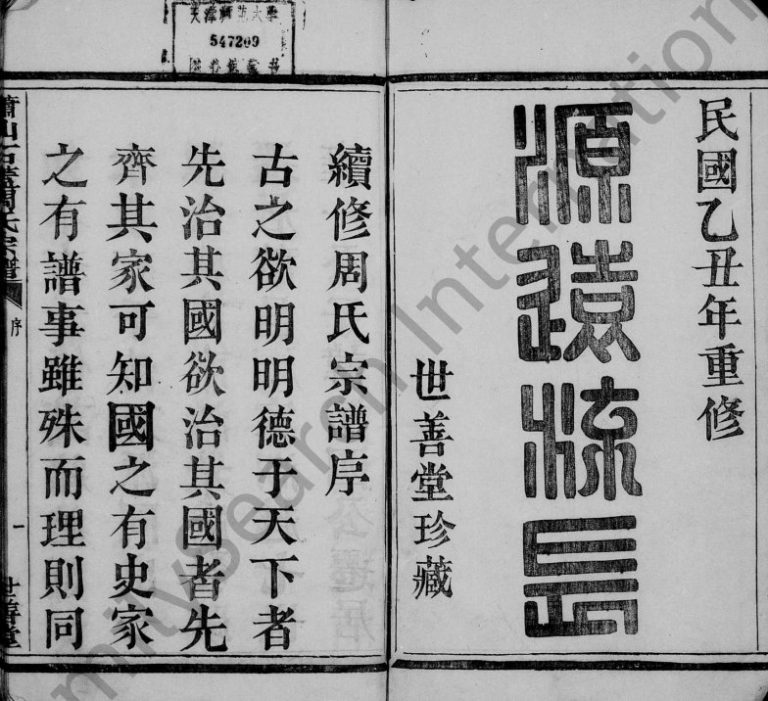 民國乙丑年重修
源遠流長
世善堂珍藏
續修周氏宗譜序
古之欲明明德于天下者
先治其國欲治其國者先
齊其家可知國之有史家
之有譜事雖殊而理則同
蕭山石蓋周氏宗譜
序
一
世善堂
547209